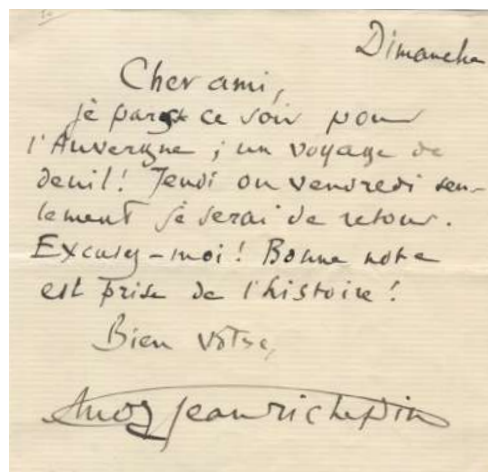 Dimanche
Cher ami,
je pars ce soir pour
l'Auvergne ; un voyage de
deuil ! Jeudi ou vendredi seu-
lement je serai de retour.
Excusez-moi ! Bonne note
est prise de l'histoire !
Bien votre,
Jean Richepin